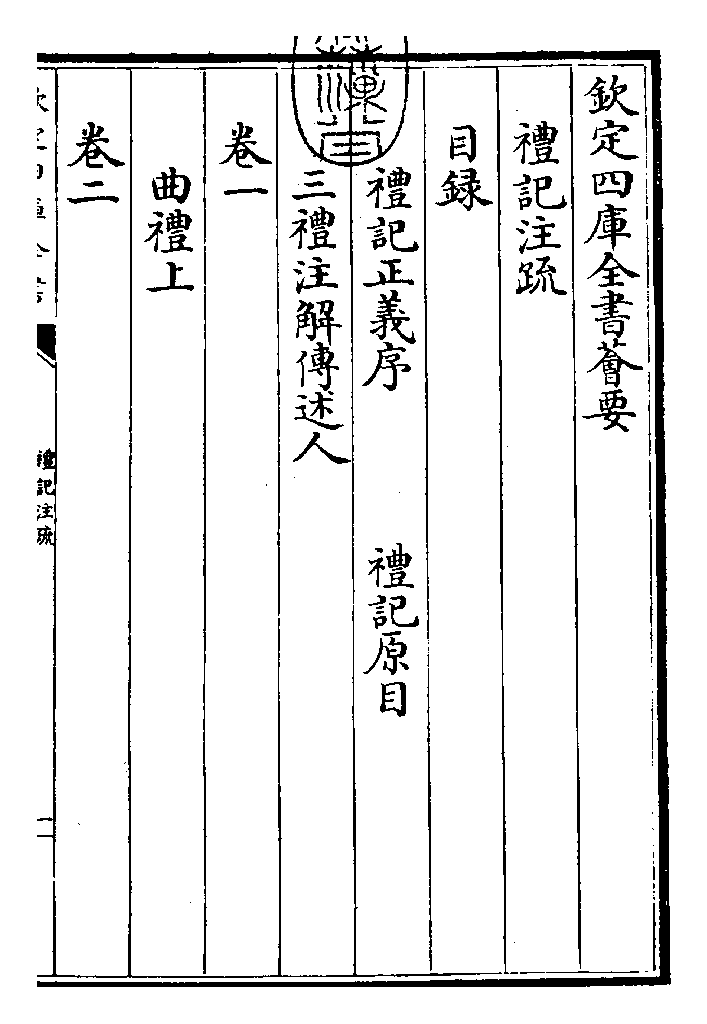 欽定四庫全書薈要
禮記注疏
目録
禮記正義序　禮記原目
三禮注解傳述人
卷一
曲禮上
卷二
禮記注疏
一